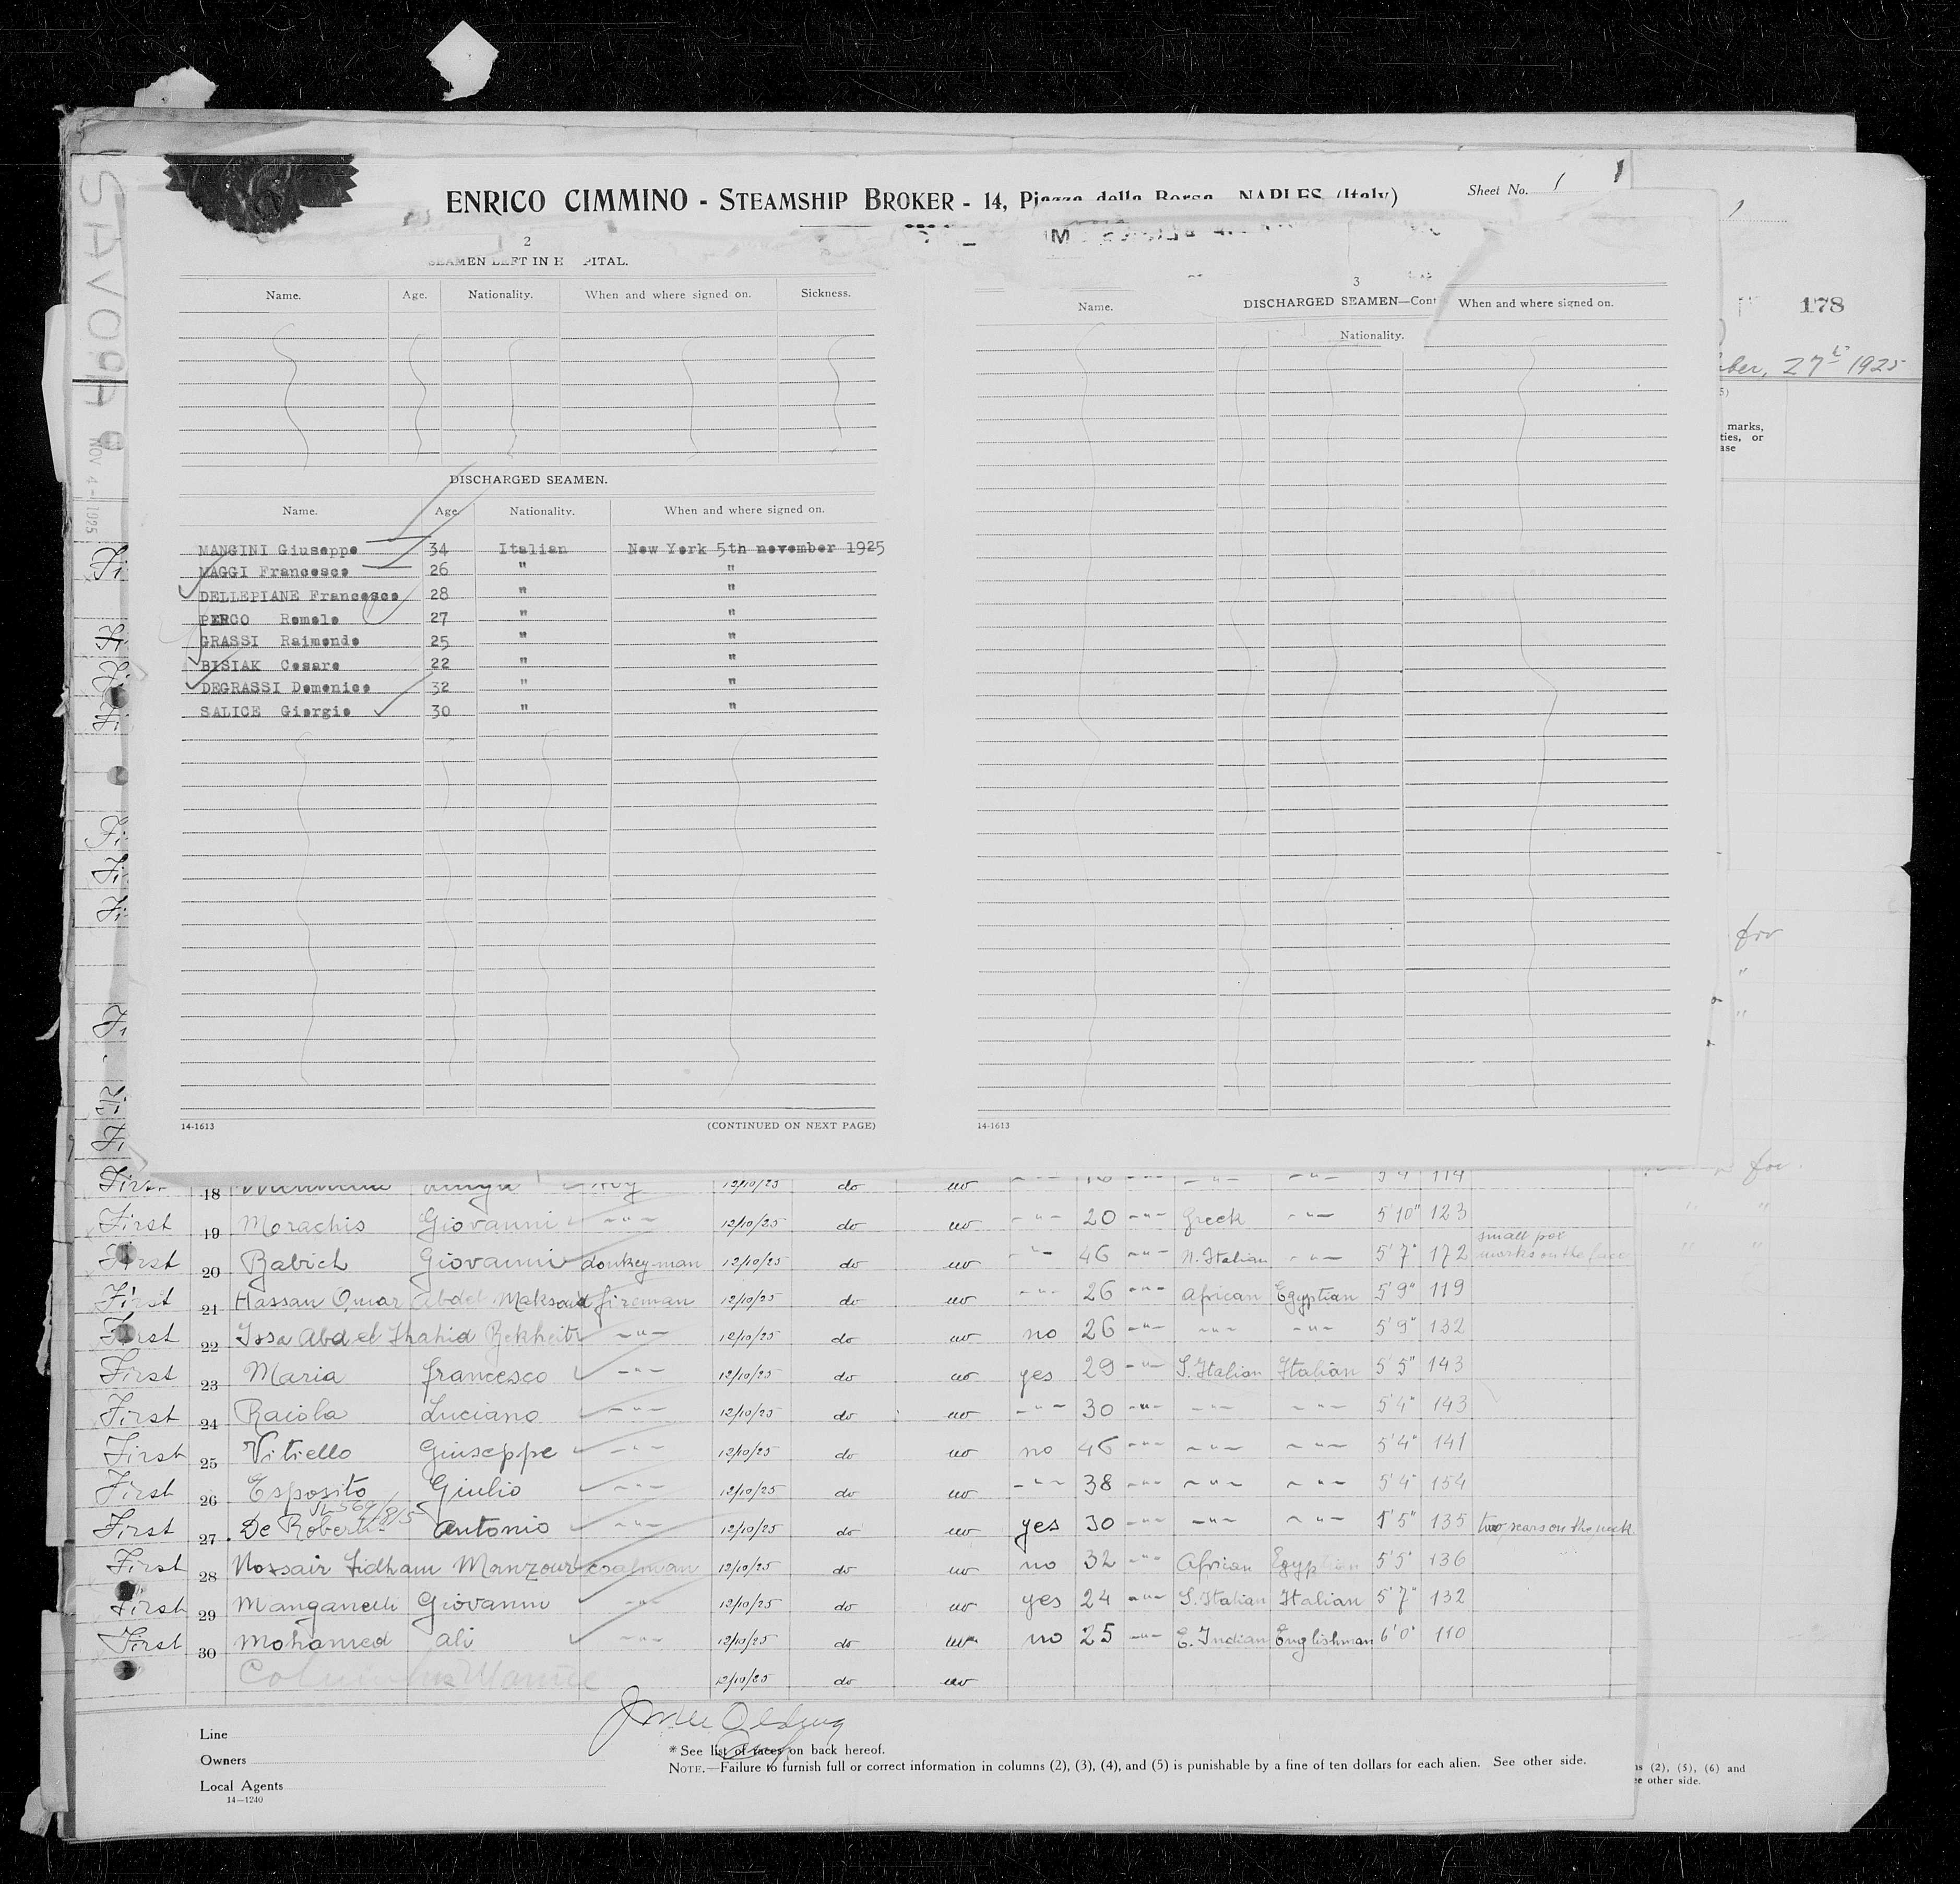 ENRICO CIMMINO - STEAMSHIP BROKER - 14, Piazza della Borsa - NAPLES (Italy)
Sheet No. 1
178
27th 1925
SAVOIA
NOV 4-1925
2
SEAMEN LEFT IN H PITAL.
Name. Age. Nationality. When and where signed on. Sickness.
DISCHARGED SEAMEN.
Name. Age. Nationality. When and where signed on.
MANGINI Giuseppe 34 Italian New York 5th november 1925
MAGGI Francesco 26 " "
DELLEPIANE Francesco 28 " "
PERCO Romolo 27 " "
GRASSI Raimondo 25 " "
BISIAK Cesare 22 " "
DEGRASSI Domenico 32 " "
SALICE Giorgio 30 " "
14-1613 (CONTINUED ON NEXT PAGE)
3
DISCHARGED SEAMEN—Cont
Name. Nationality. When and where signed on.
14-1613
marks,
ties, or
ase
for
"
"
for.
First 18 12/10/25 do 5'4" 114
First 19 Morachis Giovanni -"- 12/10/25 do -"- 20 -"- Greek -"- 5'10" 123
First 20 Babich Giovanni donkeyman 12/10/25 do -"- 46 -"- N. Italian -"- 5'7" 172 small pox marks on the face
First 21 Hassan Omar Abdel Maksoud fireman 12/10/25 do -"- 26 -"- African Egyptian 5'9" 119
First 22 Issa Abd el Shahid Bekheit -"- 12/10/25 do no 26 -"- -"- -"- 5'9" 132
First 23 Maria francesco -"- 12/10/25 do yes 29 -"- S. Italian Italian 5'5" 143
First 24 Raiola Luciano -"- 12/10/25 do -"- 30 -"- -"- -"- 5'4" 143
First 25 Vitiello Giuseppe -"- 12/10/25 do no 46 -"- -"- -"- 5'4" 141
First 26 Esposito Giulio -"- 12/10/25 do -"- 38 -"- -"- -"- 5'4" 154
First 27 De Robertis Antonio -"- 12/10/25 do yes 30 -"- -"- -"- 5'5" 135 two scars on the neck
First 28 Nossair Fidham Manzour coalman 12/10/25 do no 32 -"- African Egyptian 5'5" 136
First 29 Manganelli Giovanni -"- 12/10/25 do yes 24 -"- S. Italian Italian 5'7" 132
First 30 Mohamed ali -"- 12/10/25 do no 25 -"- E. Indian Englishman 6'0" 110
12/10/25 do
Line
Owners
Local Agents
14—1240
*See list of races on back hereof.
NOTE.—Failure to furnish full or correct information in columns (2), (3), (4), and (5) is punishable by a fine of ten dollars for each alien. See other side.
(2), (5), (6) and
other side.